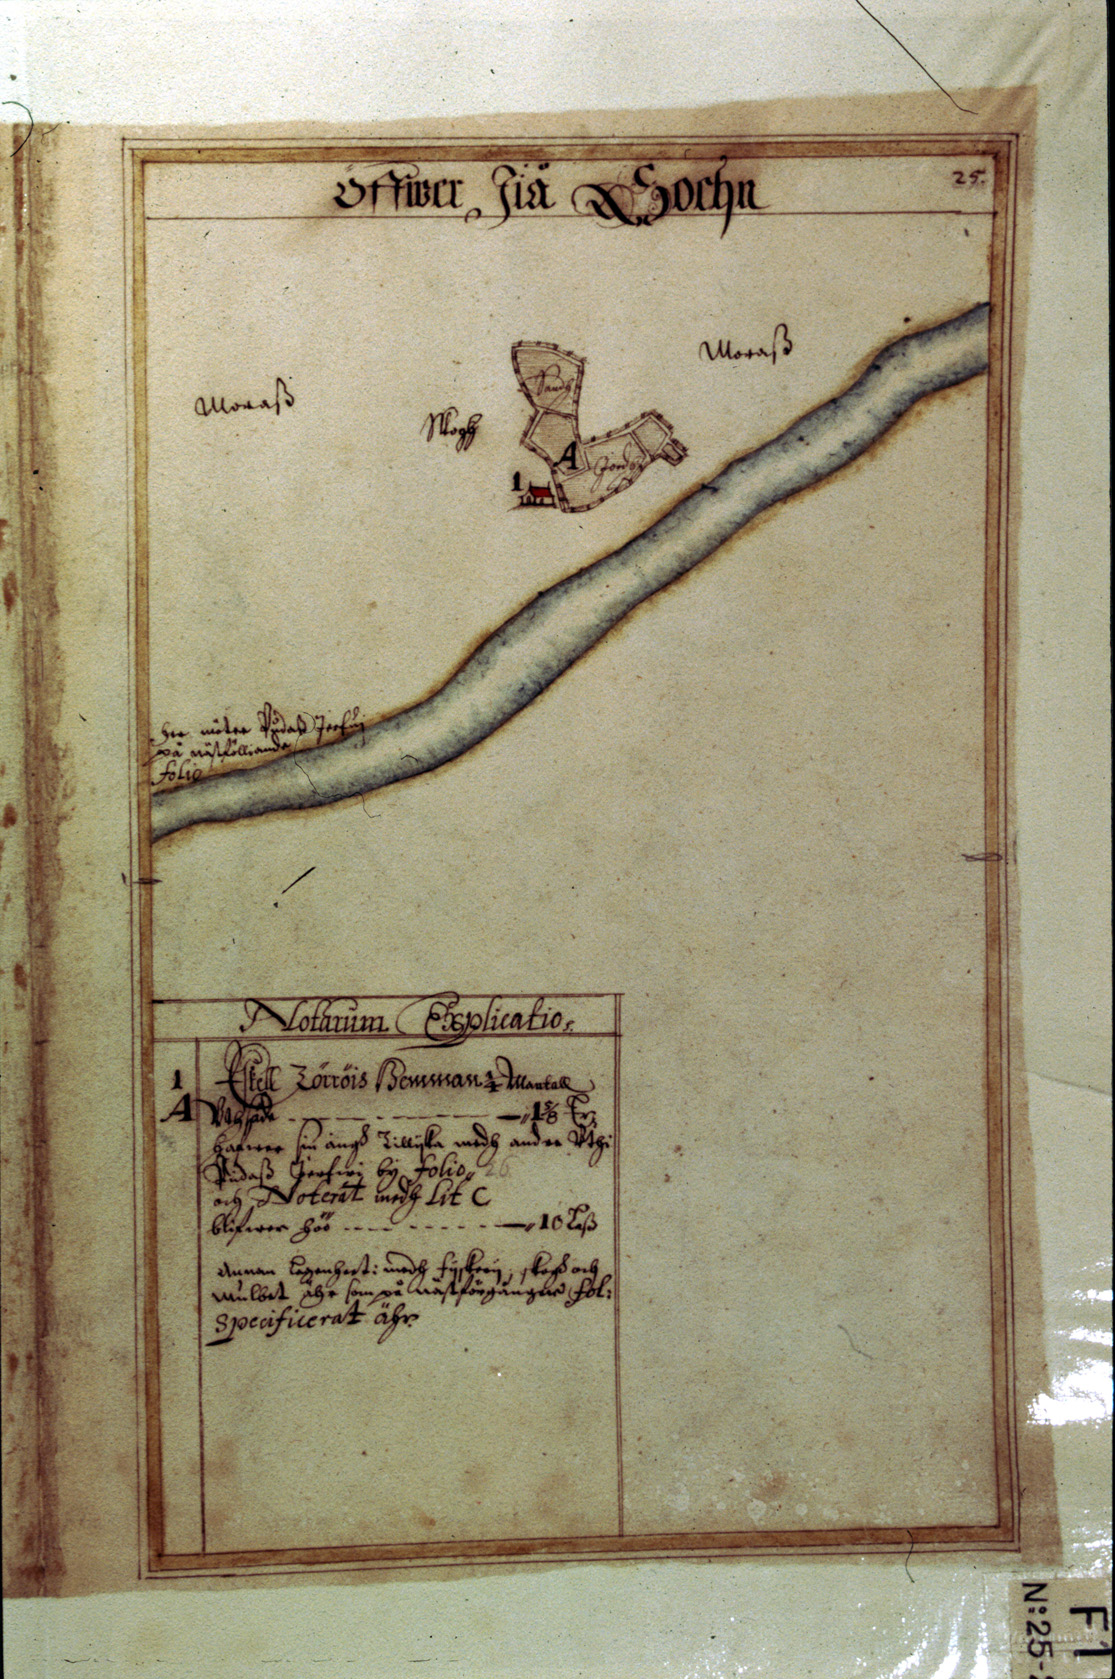 Öffwer Jiä Sochn
25.
Moraß
Moraß
Skogh
Sand
A
Jord
1
Her möter Pudaß Jerfwi
på nästföliande
folio
Notarum Explicatio.
1 Eskell Zörröis Hemman ½ Mantall
A Vthsäde 1 5/8 Tr:
Hafwer sin ängh Tillijka medh andre Vthi
Pudaß Jerfwi by folio 26.
och Noterat medh Lit C
blifwer höö 10 Laß
Annan Legenheet: medh fijskerij, skogh och
Mulbet ähr som på nästförgångne fol:
specificerat ähr.
F1
N:25-